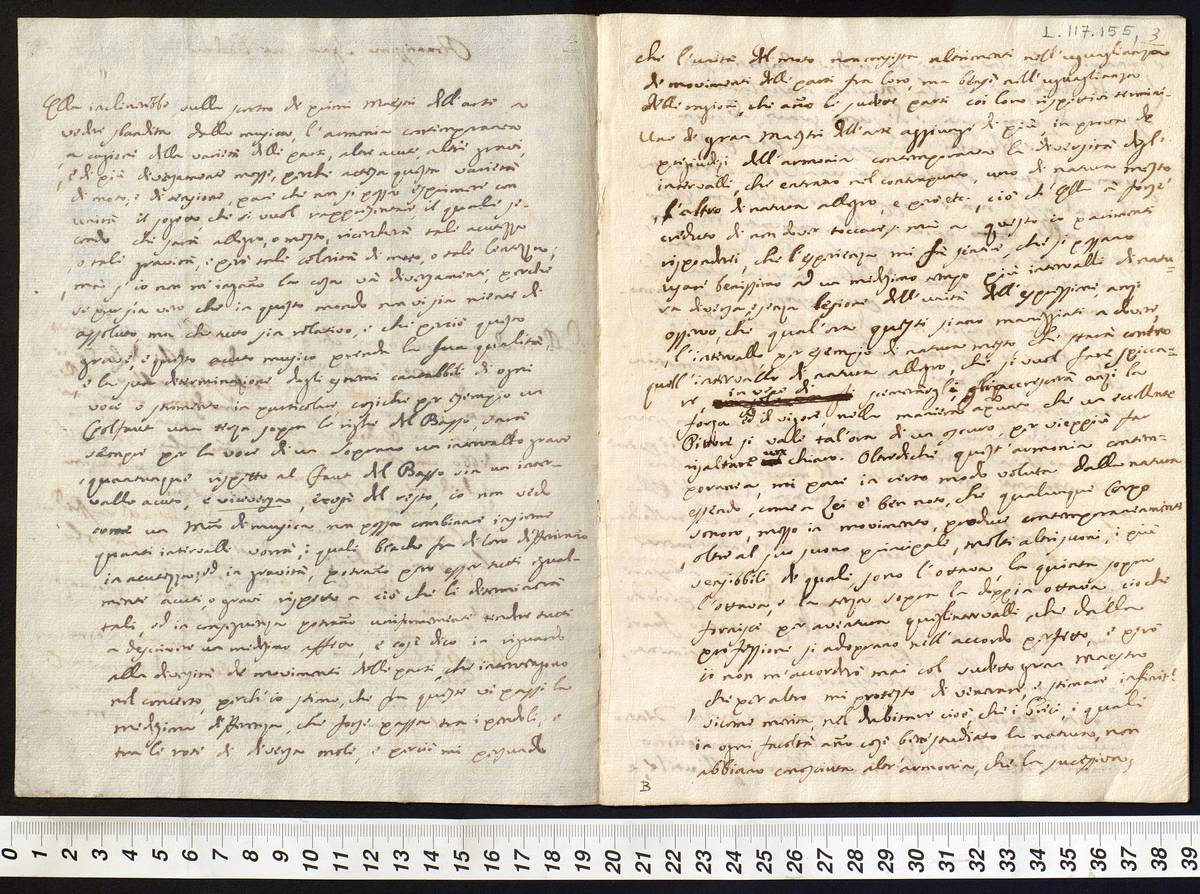 Ella inclinerebbe sulla scorta de primi Maestri dell'arte a
veder sbandita dalla musica l'armonia contemporanea
a cagione della varietà delle parti, altre acute, altre gravi,
e di più diversamente mosse, perché attesa questa varietà
di moto, e di tensione, pare che non si possa esprimere con
unità il sogetto, che si vuol rappresentare il quale se-
condo che sarà allegro, o mesto, ricercherà tale acutezza
o tale gravità, e però tale celerità di moto, o tale lentezza;
ma s'io non m'inganno la cosa và diversamente, perche
vi pur sia vero, che in questo mondo non vi sia niente di
assoluto, ma che tutto sia relativo, e che perciò questo
grave, e questo acuto musico prenda la sua qualità,
e la sua determinazione dagli estremi cantabili di ogni
voce o strumento in particolare, cosiche per esempio un
Csolfaut una terza sopra le righe del Basso, sarà
sempre per la voce di un soprano un intervallo grave
quantunque rispetto al Faut del Basso sia un inter-
vallo acuto, e viceversa, eccosi del resto, io non vedo
come un Mro di musica non possa combinare insieme
quanti intervalli vorrà, i quali benche fra di loro differiranno
in acutezza, ed in gravità, potranno pero esser tutti egual-
mente acuti, o gravi rispetto a ciò che li determinerà
tali, ed in conseguenza potranno uniformemente tendere tutti
a descrivere un medesimo affetto, e così dico in riguardo
alla diversità de movimenti delle parti, che intervengono
nel concerto, perch'io stimo, che fra queste vi passi la
medesima differenza, che forse passa tra i pendoli, e
tra le rote di diversa mole, e perciò mi persuado
L.117.155, 3
che l'unità del moto non consista altrimenti nell'uguaglianza
de movimenti delle parti fra loro, ma bensì nell'uguaglianza
delle ragioni, che anno le sudette parti coi loro rispettivi termini.
Uno de gran Maestri dell'arte aggiunge di più, in prova de
pregiudizi dell'armonia contemporanea la diversità degl'
intervalli, che entrano nel contrapunto, uno di natura mesto
l'altro di natura allegro, e pero etc, ciò ch'Ella à forse
creduto di non dover toccare; ma a questo io parimenti
risponderei, che l'esperienza mi fà sentire, che si possano
usare benissimo ad un medesimo tempo più intervalli di natu-
ra diversa, senza lesione dell'unità dell'espressione, anzi
osservo, che qual'ora questi siano maneggiati a dovere,
l'intervallo per esempio di natura mesto che starà contro
quell'intervallo di natura allegro, che si vuol fare spicca-
re, in vece di scemargli gli accrescerà anzi la
forza ed il vigore, nella maniera apunto, che un eccellente
Pittore si valle tal'ora di un oscuro, per vieppiù far
risaltare un chiaro. Oltredichè quest'armonia contem-
poranea, mi pare in certo modo voluta dalla natura
essendo, come a Lei è ben noto, che qualunque Corpo
sonoro, messo in movimento, produce contemporaneamente
oltre al suo suono principale, molti altri suoni, i più
sensibili de quali, sono l'ottava, la quinta sopra
l'ottava, e la terza sopra la doppia ottava cioè che
fornisce per aventura quegl'intervalli, che dalla
professione si adoprano nell'accordo perfetto, e però
io non m'accorderò mai col sudetto gran Maestro
che per altro mi protesto di venerare, e stimare infinite
siccome merita nel dubitare cioè, che i Greci, i quali
in ogni facoltà anno così bene studiato la natura, non
abbiano conosciuta altr'armonia, che la successiva,
B
0 1 2 3 4 5 6 7 8 9 10 11 12 13 14 15 16 17 18 19 20 21 22 23 24 25 26 27 28 29 30 31 32 33 34 35 36 37 38 39